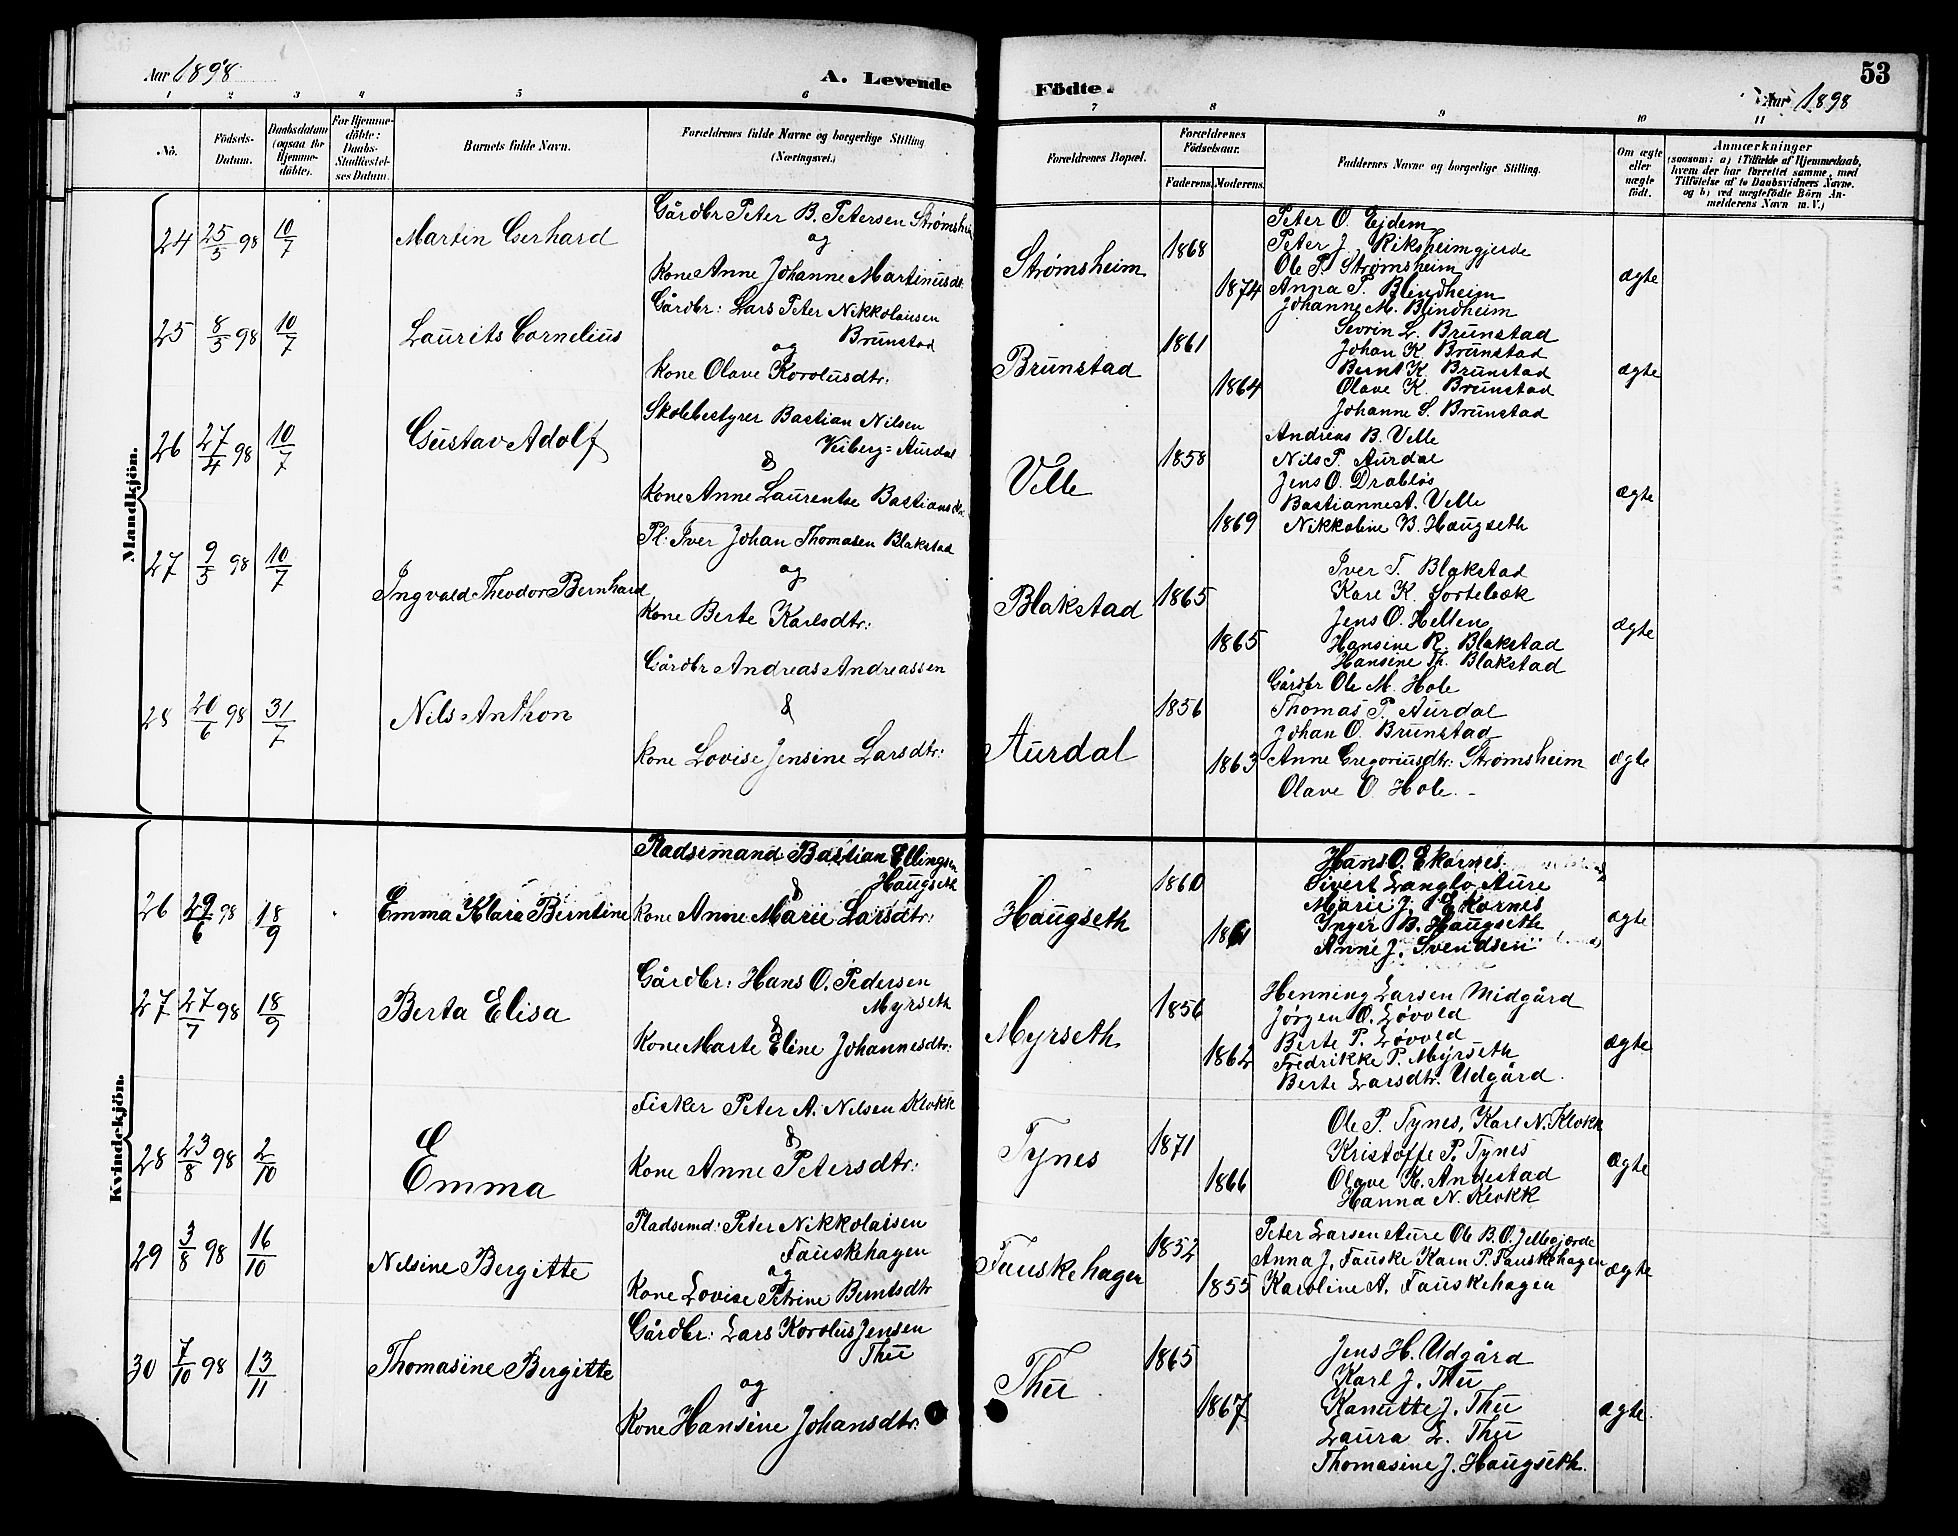 Aar 1898
A. Levende
Födte.
53
Aar 1898
1 2 3 4 5 6 7 8 9 10 11
No.
Födsels-Datum.
Daabsdatum (ogsaa for Hjemme-döbte).
For Hjemme-döbte: Daabs-Stadfæstel-ses Datum.
Barnets fulde Navn.
Forældrenes fulde Navne og borgerlige Stilling (Næringsvei.)
Forældrenes Bopæl.
Forældrenes Födselsaar.
Faderens. Moderens.
Faddernes Navne og borgerlige Stilling.
Om ægte eller uægte födt.
Anmærkninger
(saasom: a) i Tilfælde af Hjemmedaab, hvem der har forrettet samme, med Tilföielse af to Daabsvidners Navne. og b) ved uægtefödte Börn An-melderens Navn m. V.)
Mandkjön.
24 25/5 98 10/7 Martin Gerhard
Gårdbr Peter B. Petersen Strømsheim
og
Kone Anne Johanne Martinusdr.
Strømsheim 1868 1874
Peter O. Ejdem
Peter J. Riksheimgjerde
Ole P. Strømsheim
Anna P. Blindheim
Johanne M. Blindheim
ægte
25 8/5 98 10/7 Laurits Cornelius
Gårdbr: Lars Peter Nikkolaisen
Brunstad
og
Kone Olave Korolusdtr:
Brunstad 1861 1864
Sevrin L. Brunstad
Johan K. Brunstad
Bernt K. Brunstad
Olave K. Brunstad
Johanne S. Brunstad
ægte
26 27/4 98 10/7 Gustav Adolf
Skolebestyrer Bastian Nilsen
Viiberg=Aurdal
&
Kone Anne Laurentse Bastiansdr.
Velle 1858 1869
Andreas B. Velle
Nils P. Aurdal
Jens O. Drabløs
Bastianne A. Velle
Nikkoline B. Haugseth
ægte
27 9/5 98 10/7 Ingvald Theodor Bernhard
Pl: Iver Johan Thomasen Blakstad
og
Kone Berte Karlsdtr:
Blakstad 1865 1865
Iver T. Blakstad
Karl K. Sortebæk
Jens O. Hellen
Hansine R. Blakstad
Hansine Th. Blakstad
ægte
28 20/6 98 31/7 Nils Anthon
Gårdbr Andreas Andreassen
&
Kone Lovise Jensine Larsdtr:
Aurdal 1856 1863
Gårdbr Ole M. Hole
Thomas P. Aurdal
Johan O. Brunstad
Anne Gregoriusdtr: Strømsheim
Olave O. Hole. -
ægte
Kvindekjön.
26 29/6 98 18/9 Emma Klara Berntine
Pladsemand Bastian Ellingsen
Haugseth
&
Kone Anne Marie Larsdtr:
Haugseth 1860 1861
Hans O. Ekornes
Sivert Langlo, Aure
Marie J. Ekornes
Inger B. Haugseth
Anne J. Svendsen
ægte
27 27/7 98 18/9 Berta Elisa
Gårdbr: Hans O. Pedersen
Myrseth
&
Kone Marte Eline Johannesdtr:
Myrseth 1856 1862
Henning Larsen Midgård
Jørgen O. Løvold
Berte P. Løvold
Fredrikke P. Myrseth
Berte Larsdtr. Udgård.
ægte
28 23/8 98 2/10 Emma
Fisker Peter A. Nilsen Klokk
&
Kone Anne Petersdtr:
Tynes 1871 1866
Ole P. Tynes, Karl N. Klokk
Kristoffe P. Tynes
Olave K. Andestad
Hanna N. Klokk
ægte
29 3/8 98 16/10 Nilsine Bergitte
Pladsemd: Peter Nikkolaisen
Fauskehagen
og
Kone Lovise Petrine Berntsdtr
Fauskehagen 1852 1855
Peter Larsen Aure Ole B. O. Jellegjærde
Anna J. Fauske Karn P. Fauskehagen
Karoline A. Fauskehagen
ægte
30 7/10 98 13/11 Thomasine Bergitte
Gårdbr: Lars Korolus Jensen
Thu
og
Kone Hansine Johansdtr.
Thu 1865 1867
Jens H. Udgård
Karl J. Thu
Kanutte J. Thu
Laura L. Thu
Thomasine J. Haugseth.
ægte.